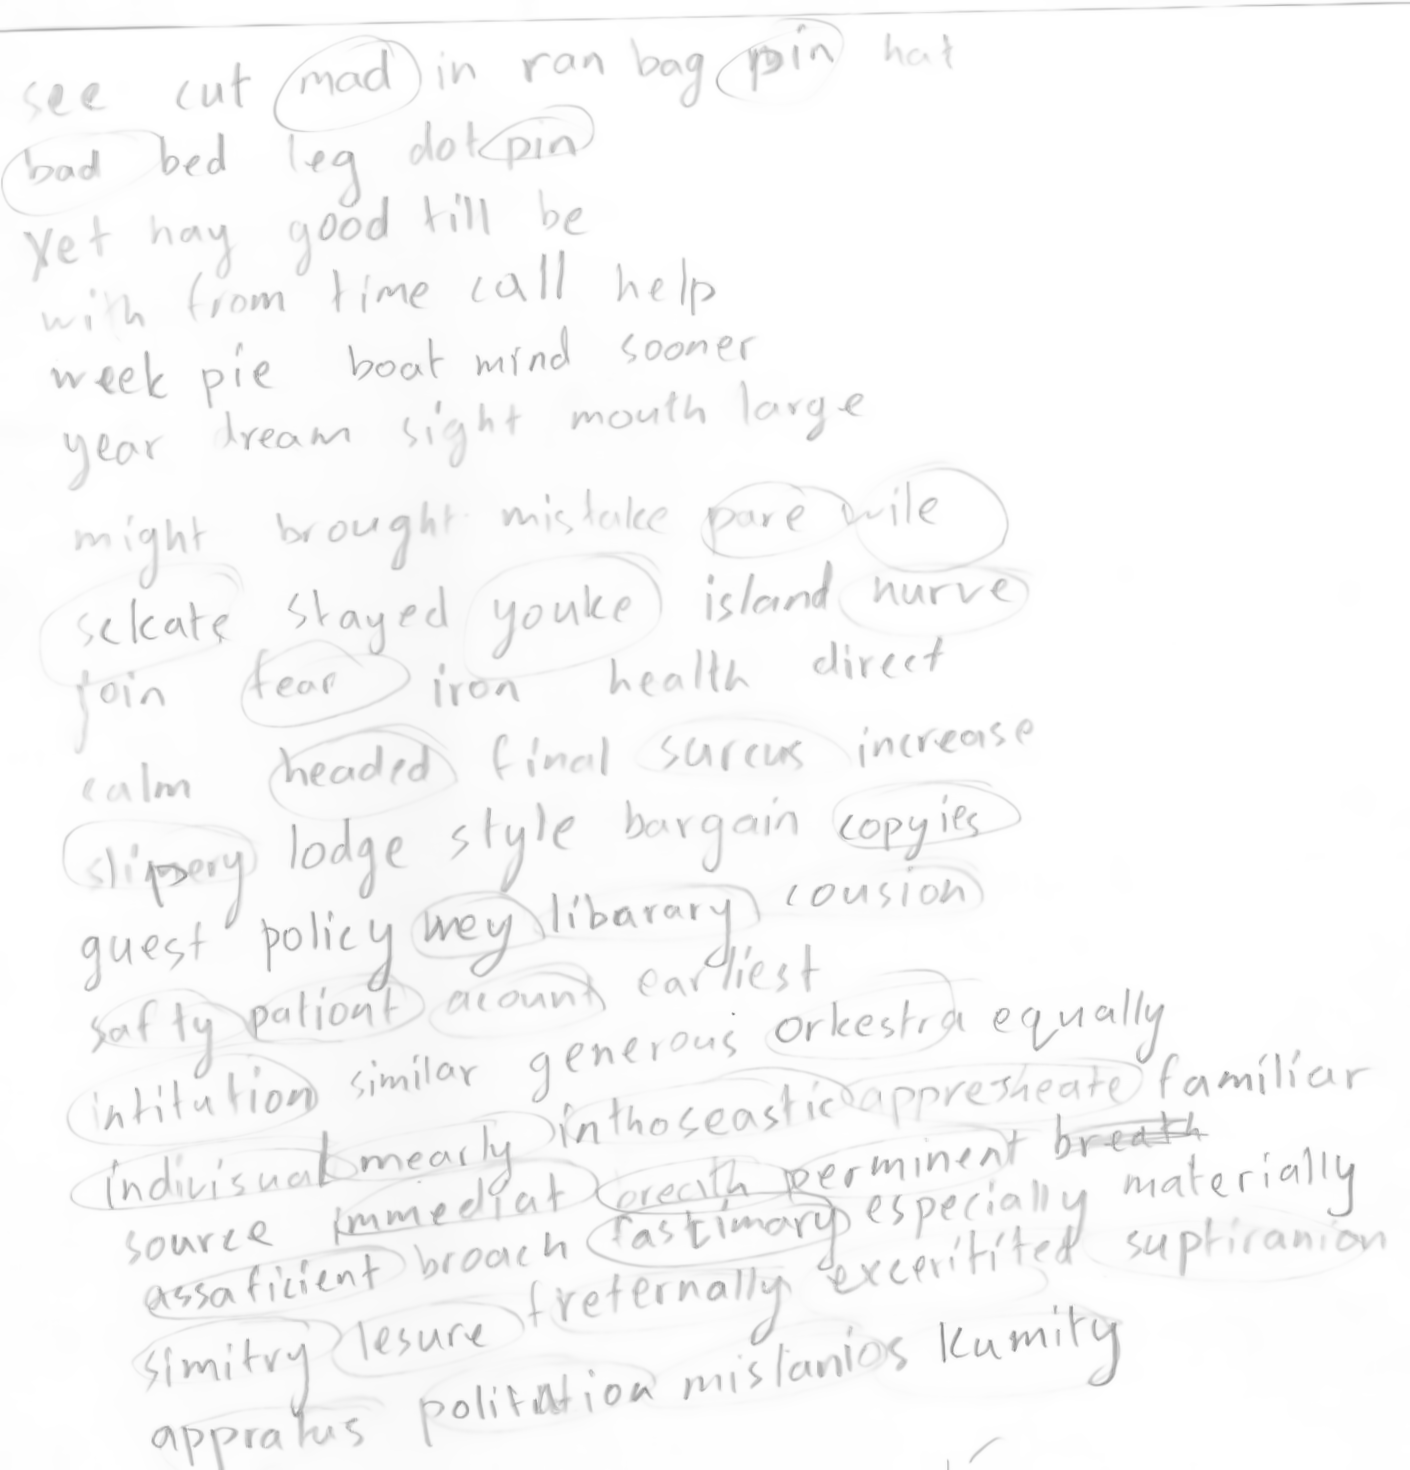 see cut mad in ran bag pin hat
bad bed leg dot pin
Yet hay good till be
with from time call help
week pie boat mind sooner
year dream sight mouth large
might brought mistake pare wile
selcate stayed youke island nurve
join fear iron health direct
calm headed final surcus increase
slippery lodge style bargain copyies
guest policy wey libarary cousion
safty pationt acount earliest
intitution similar generous orkestra equally
indivisual mearly inthoseastic appresheate familiar
source immediat breath perminent breath
assaficient broach fastimary especially materially
simitry lesure freternally exceritited suptiranion
appratus politation mislanios kumity